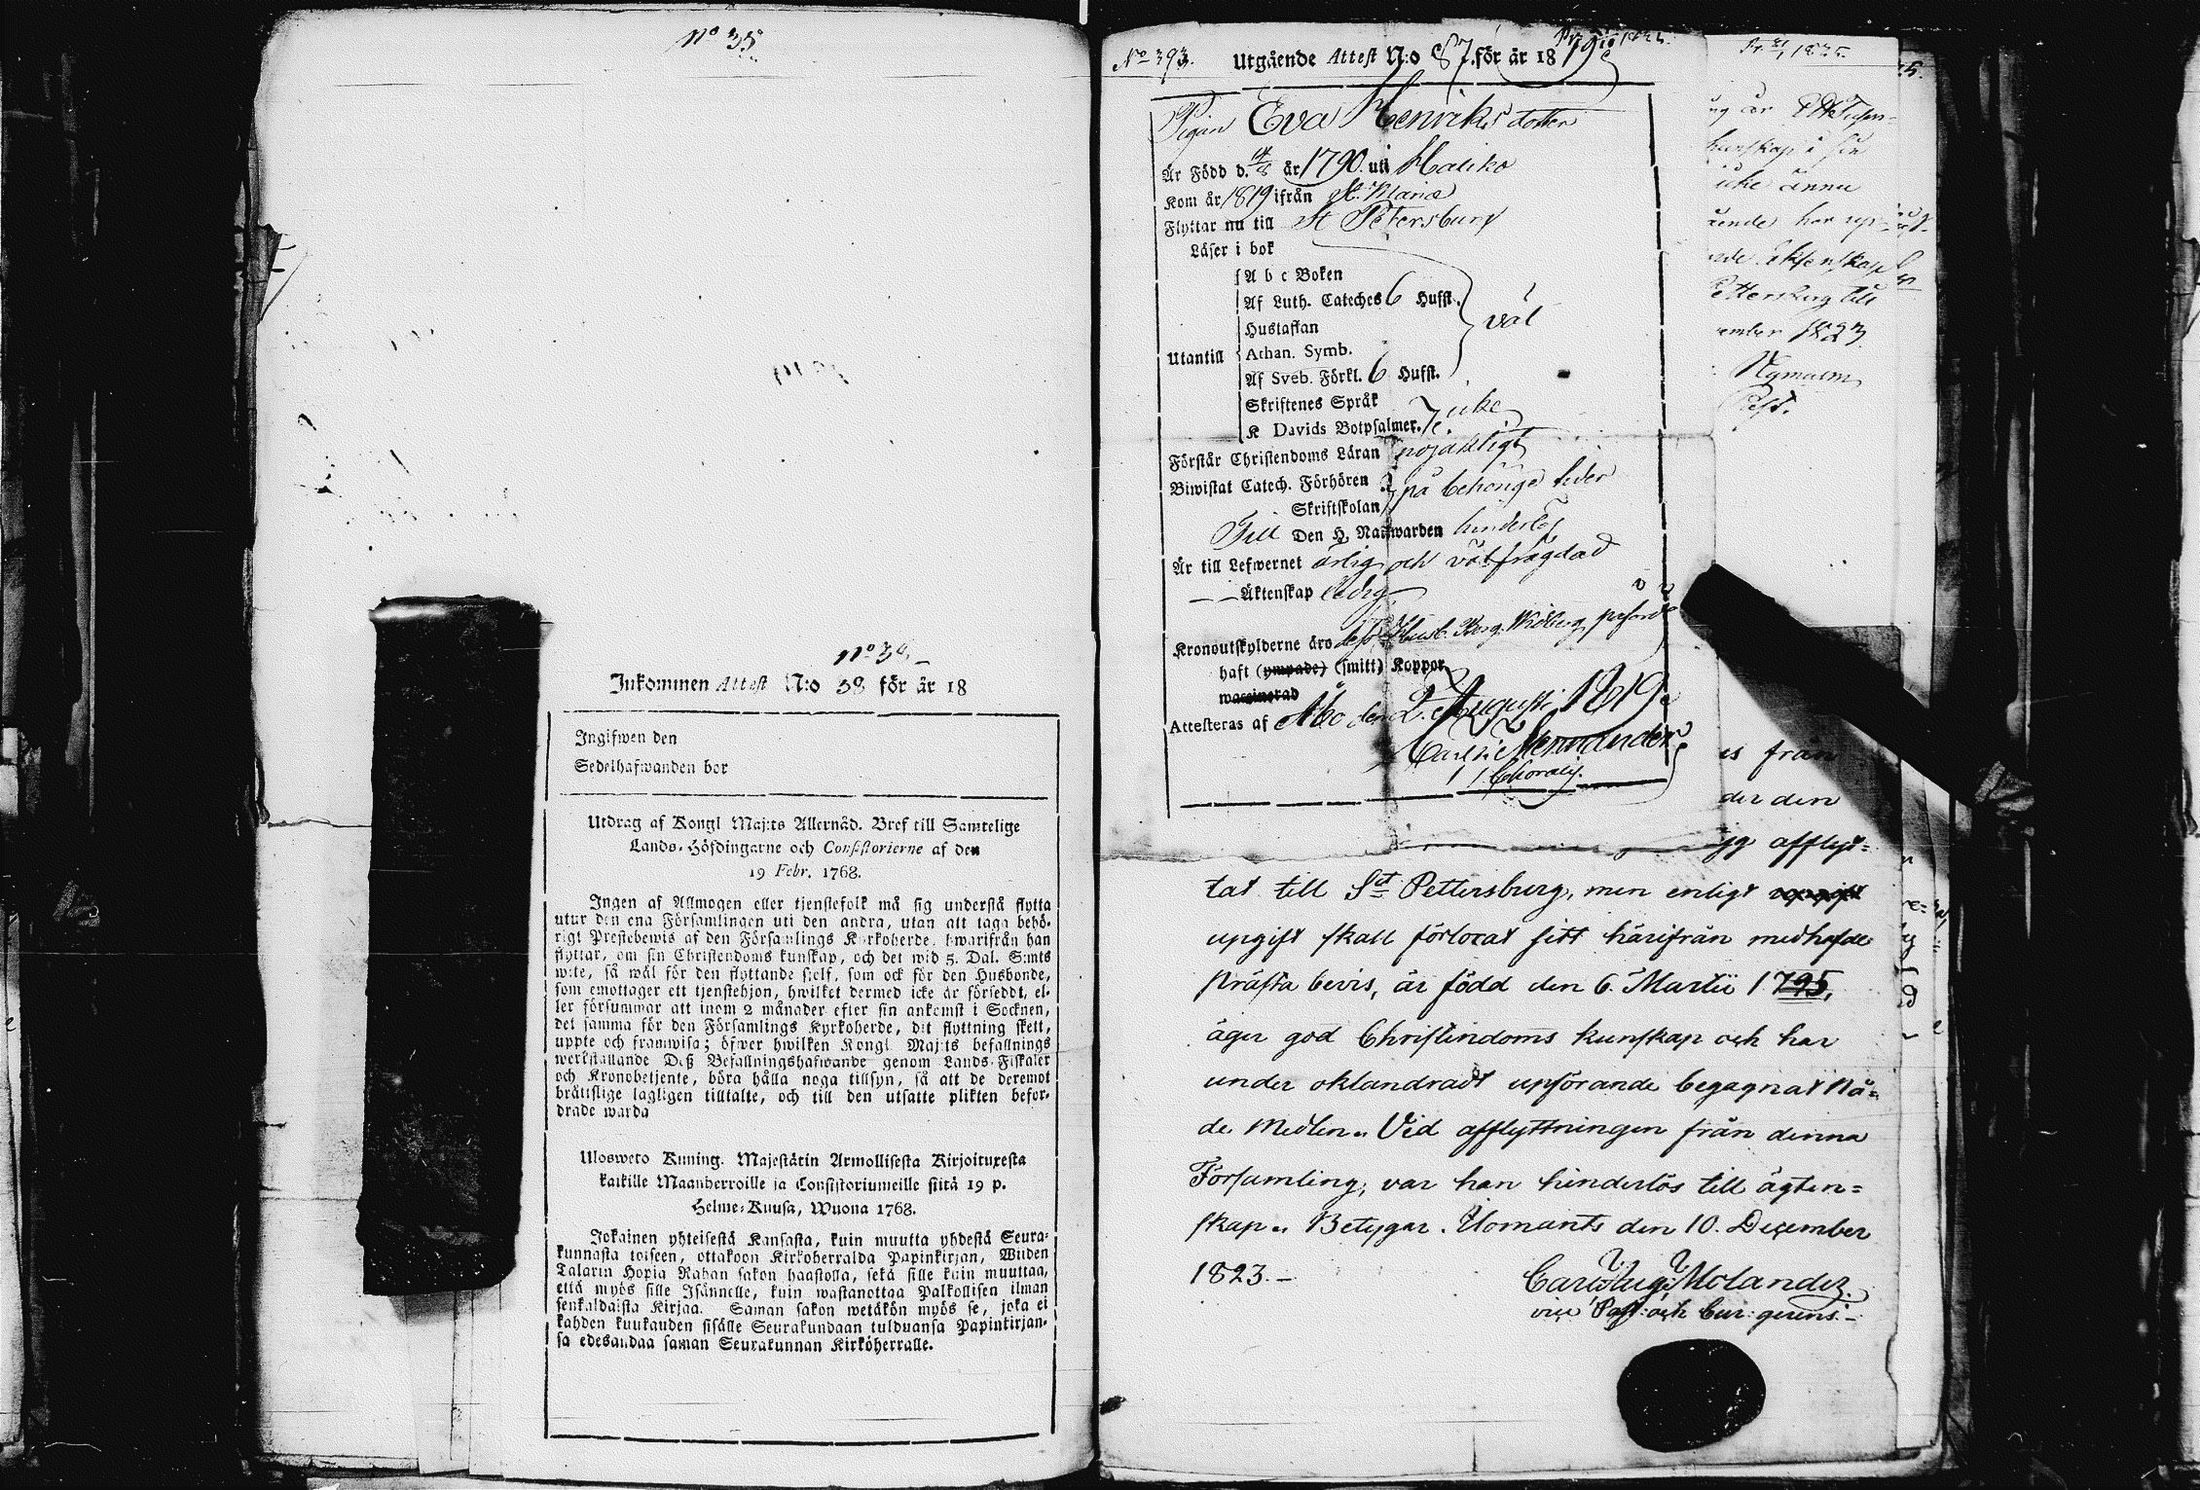 No 35
No 39
Inkommen Attest N:o 38 för år 18
Ingifwen den
Sedelhafwanden bor
Utdrag af Kongl Maj:ts Allernåd. Bref till Samtelige
Lands-Höfdingarne och Consistorierne af den
19 Febr. 1768.
Ingen af Allmogen eller tjenstefolk må sig understå flytta
utur den ena Församlingen uti den andra, utan att taga behö-
rigt Prestebewis af den Församlings Kyrkoherde, hwarifrån han
flyttar, om sin Christendoms kunskap, och det wid 5. Dal. S:mts
wite, så wäl för den flyttande sielf, som ock för den Husbonde,
som emottager ett tjenstehjon, hwilket dermed icke är försedt, el-
ler försummar att inom 2 månader efter sin ankomst i Socknen,
det samma för den Församlings Kyrkoherde, dit flyttning skett,
uppte och framwisa; öfwer hwilken Kongl Maj:ts befallnings
werkställande Deß Befallningshafwande genom Lands-Fiskaler
och Kronobetjente, böra hålla noga tillsyn, så att de deremot
bråttslige lagligen tilltalte, och till den utsatte plikten befor-
drade warda
Ulosweto Kuning. Majestätin Armollisesta Kirjoituxesta
kaikille Maanherroille ja Consistoriumeille siitä 19 p.
Helme-Kuusa, Wuona 1768.
Jokainen yhteisestä Kansasta, kuin muutta yhdestä Seura-
kunnasta toiseen, ottakoon Kirkoherralda Papinkirjan, Wiiden
Talarin Hopia Rahan sakon haastolla, sekä sille kuin muuttaa,
että myös sille Isännelle, kuin wastanottaa Palkollisen ilman
senkaldaista Kirjaa. Saman sakon wetäkön myös se, joka ei
kahden kuukauden sisälle Seurakundaan tulduansa Papinkirjan-
sa edesandaa saman Seurakunnan Kirköherralle.
No 393. Utgående Attest N:o 87. för år 1819
Pigan Eva Henriksdotter
Är Född d. 14/8 år 1790. uti Haliko
Kom år 1819 ifrån St. Mariæ
Flyttar nu till St Petersburg
Läser i bok
A b c Boken
Af Luth. Cateches 6 Hufst.
väl
Hustaflan
Utantill Athan. Symb.
Af Sveb. Förkl. 6 Hufst.
Skriftenes Språk
icke
K Davids Botpsalmer.
Förstår Christendoms Läran nöjaktigt
Biwistat Catech. Förhören
på behörige tider
Skriftskolan
Till Den H. Nattwarden hinderlös
Är till Lefwernet ärlig och väl frägdad
Äktenskap ledig
Kronoutskylderne äro
haft (ympade) (smitt) Koppor
waccinerad
Attesteras af Åbo den 2. Augusti 1819
ember 1823
Nymalm
Past.
us från
der den
yg afflyt=
tat till St Pettersburg, men enligt
upgift skall förlorat sitt härifrån medhafde
Prästa bevis, är född den 6. Martii 1795,
äger god Christindoms kunskap och har
under oklandradt upförande begagnat Nå=
de Medlen. Vid afflyttningen från denna
Församling, var han hinderlös till ägten=
skap. Betygar. Ilomants den 10. December
1823.
Carl Aug: Molander.
vice Past: och Cur: gerens.